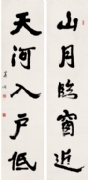 山月臨窗近
天河入戶低